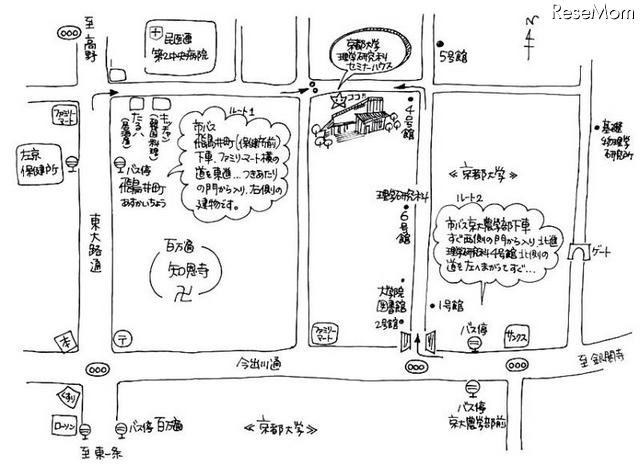 ReseMom
至高野
民医連
第2中央病院
京都大学
理学研究科
セミナーハウス
ココ!
N
5号館
4号館
基礎
物理学
研究所
ファミリー
マート
左京
保健所
バス停
飛鳥井町
あすかいちょう
キッチャン
(韓国料理)
(居酒屋)
ルート1
市バス
飛鳥井町(保健所前)
下車.ファミリーマート横の
道を東進...つきあたり
の門から入り、右側の
建物です。
≪京都大学≫
理学研究科
6号館
ルート2
市バス京大農学部前下車
すぐ西側の門から入り北進
理学研究科4号館北側の
道を左へまがってすぐ...
ゲート
東大路通
百万遍
知恩寺
卍
大学院
図書館
2号館
1号館
バス停
サンクス
ファミリー
マート
本
〒
今出川通
至銀閣寺
くすり
ローソン
バス停 百万遍
≪京都大学≫
バス停
京大農学部前
至東一条